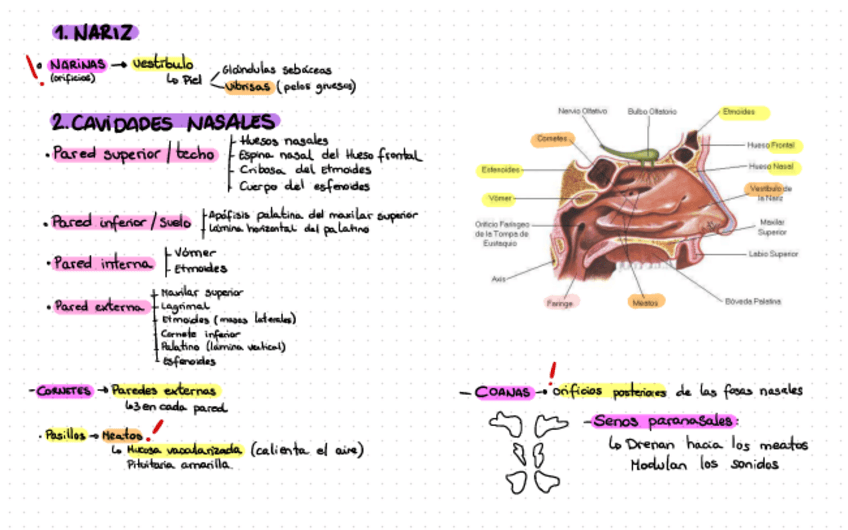 1. NARIZ
! • NARINAS → vestíbulo
(orificios)
↳ Piel
Glándulas sebáceas
Vibrisas (pelos gruesos)
2. CAVIDADES NASALES
• Pared superior / techo
- Huesos nasales
- Espina nasal del Hueso frontal
- Cribosa del Etmoides
- Cuerpo del esfenoides
• Pared inferior / suelo
- Apófisis palatina del maxilar superior
- Lámina horizontal del palatino
• Pared interna
- Vómer
- Etmoides
• Pared externa
- Maxilar superior
- Lagrimal
- Etmoides (masas laterales)
- Cornete inferior
- Palatino (lámina vertical)
- Esfenoides
- CORNETES → Paredes externas
↳ 3 en cada pared
• Pasillos → Meatos !
↳ Mucosa vascularizada (calienta el aire)
Pituitaria amarilla
Nervio Olfativo
Bulbo Olfatorio
Etmoides
Cornetes
Hueso Frontal
Esfenoides
Hueso Nasal
Vómer
Vestíbulo de
la Nariz
Orificio Faríngeo
de la Tompa de
Eustaquio
Maxilar
Superior
Labio Superior
Axis
Faringe
Meatos
Bóveda Palatina
!
- COANAS → orificios posteriores de las fosas nasales
- Senos paranasales:
↳ Drenan hacia los meatos
Modulan los sonidos